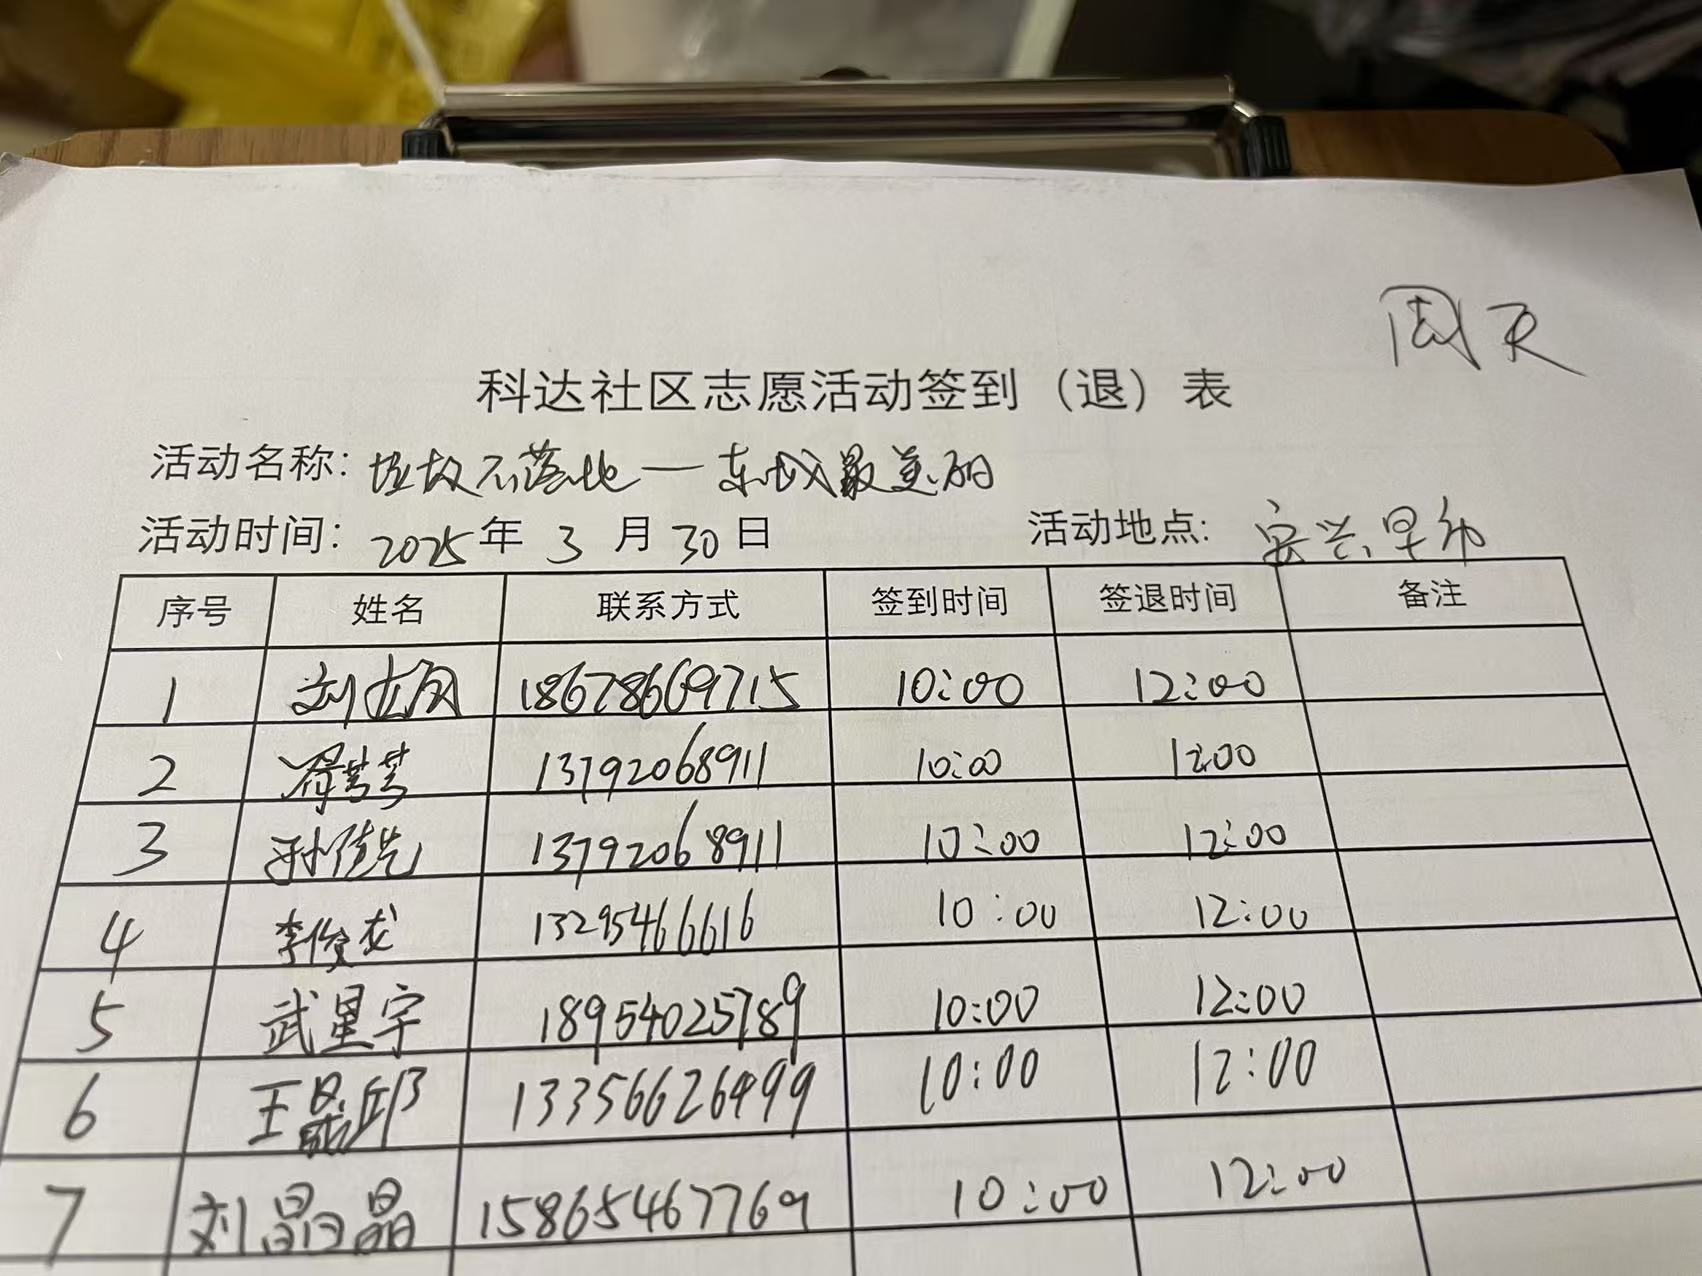 周天
科达社区志愿活动签到（退）表
活动名称：垃圾不落地一东城最美丽
活动时间：2025年 3 月 30 日 活动地点：安兴早市
序号 姓名 联系方式 签到时间 签退时间 备注
1 刘 18678669715 10:00 12:00
2 芳芳 13792068911 10:00 12:00
3 孙 13792068911 10:00 12:00
4 李俊龙 13295466616 10:00 12:00
5 武星宇 18954025789 10:00 12:00
6 王 13356626499 10:00 12:00
7 刘晶晶 15865467769 10:00 12:00